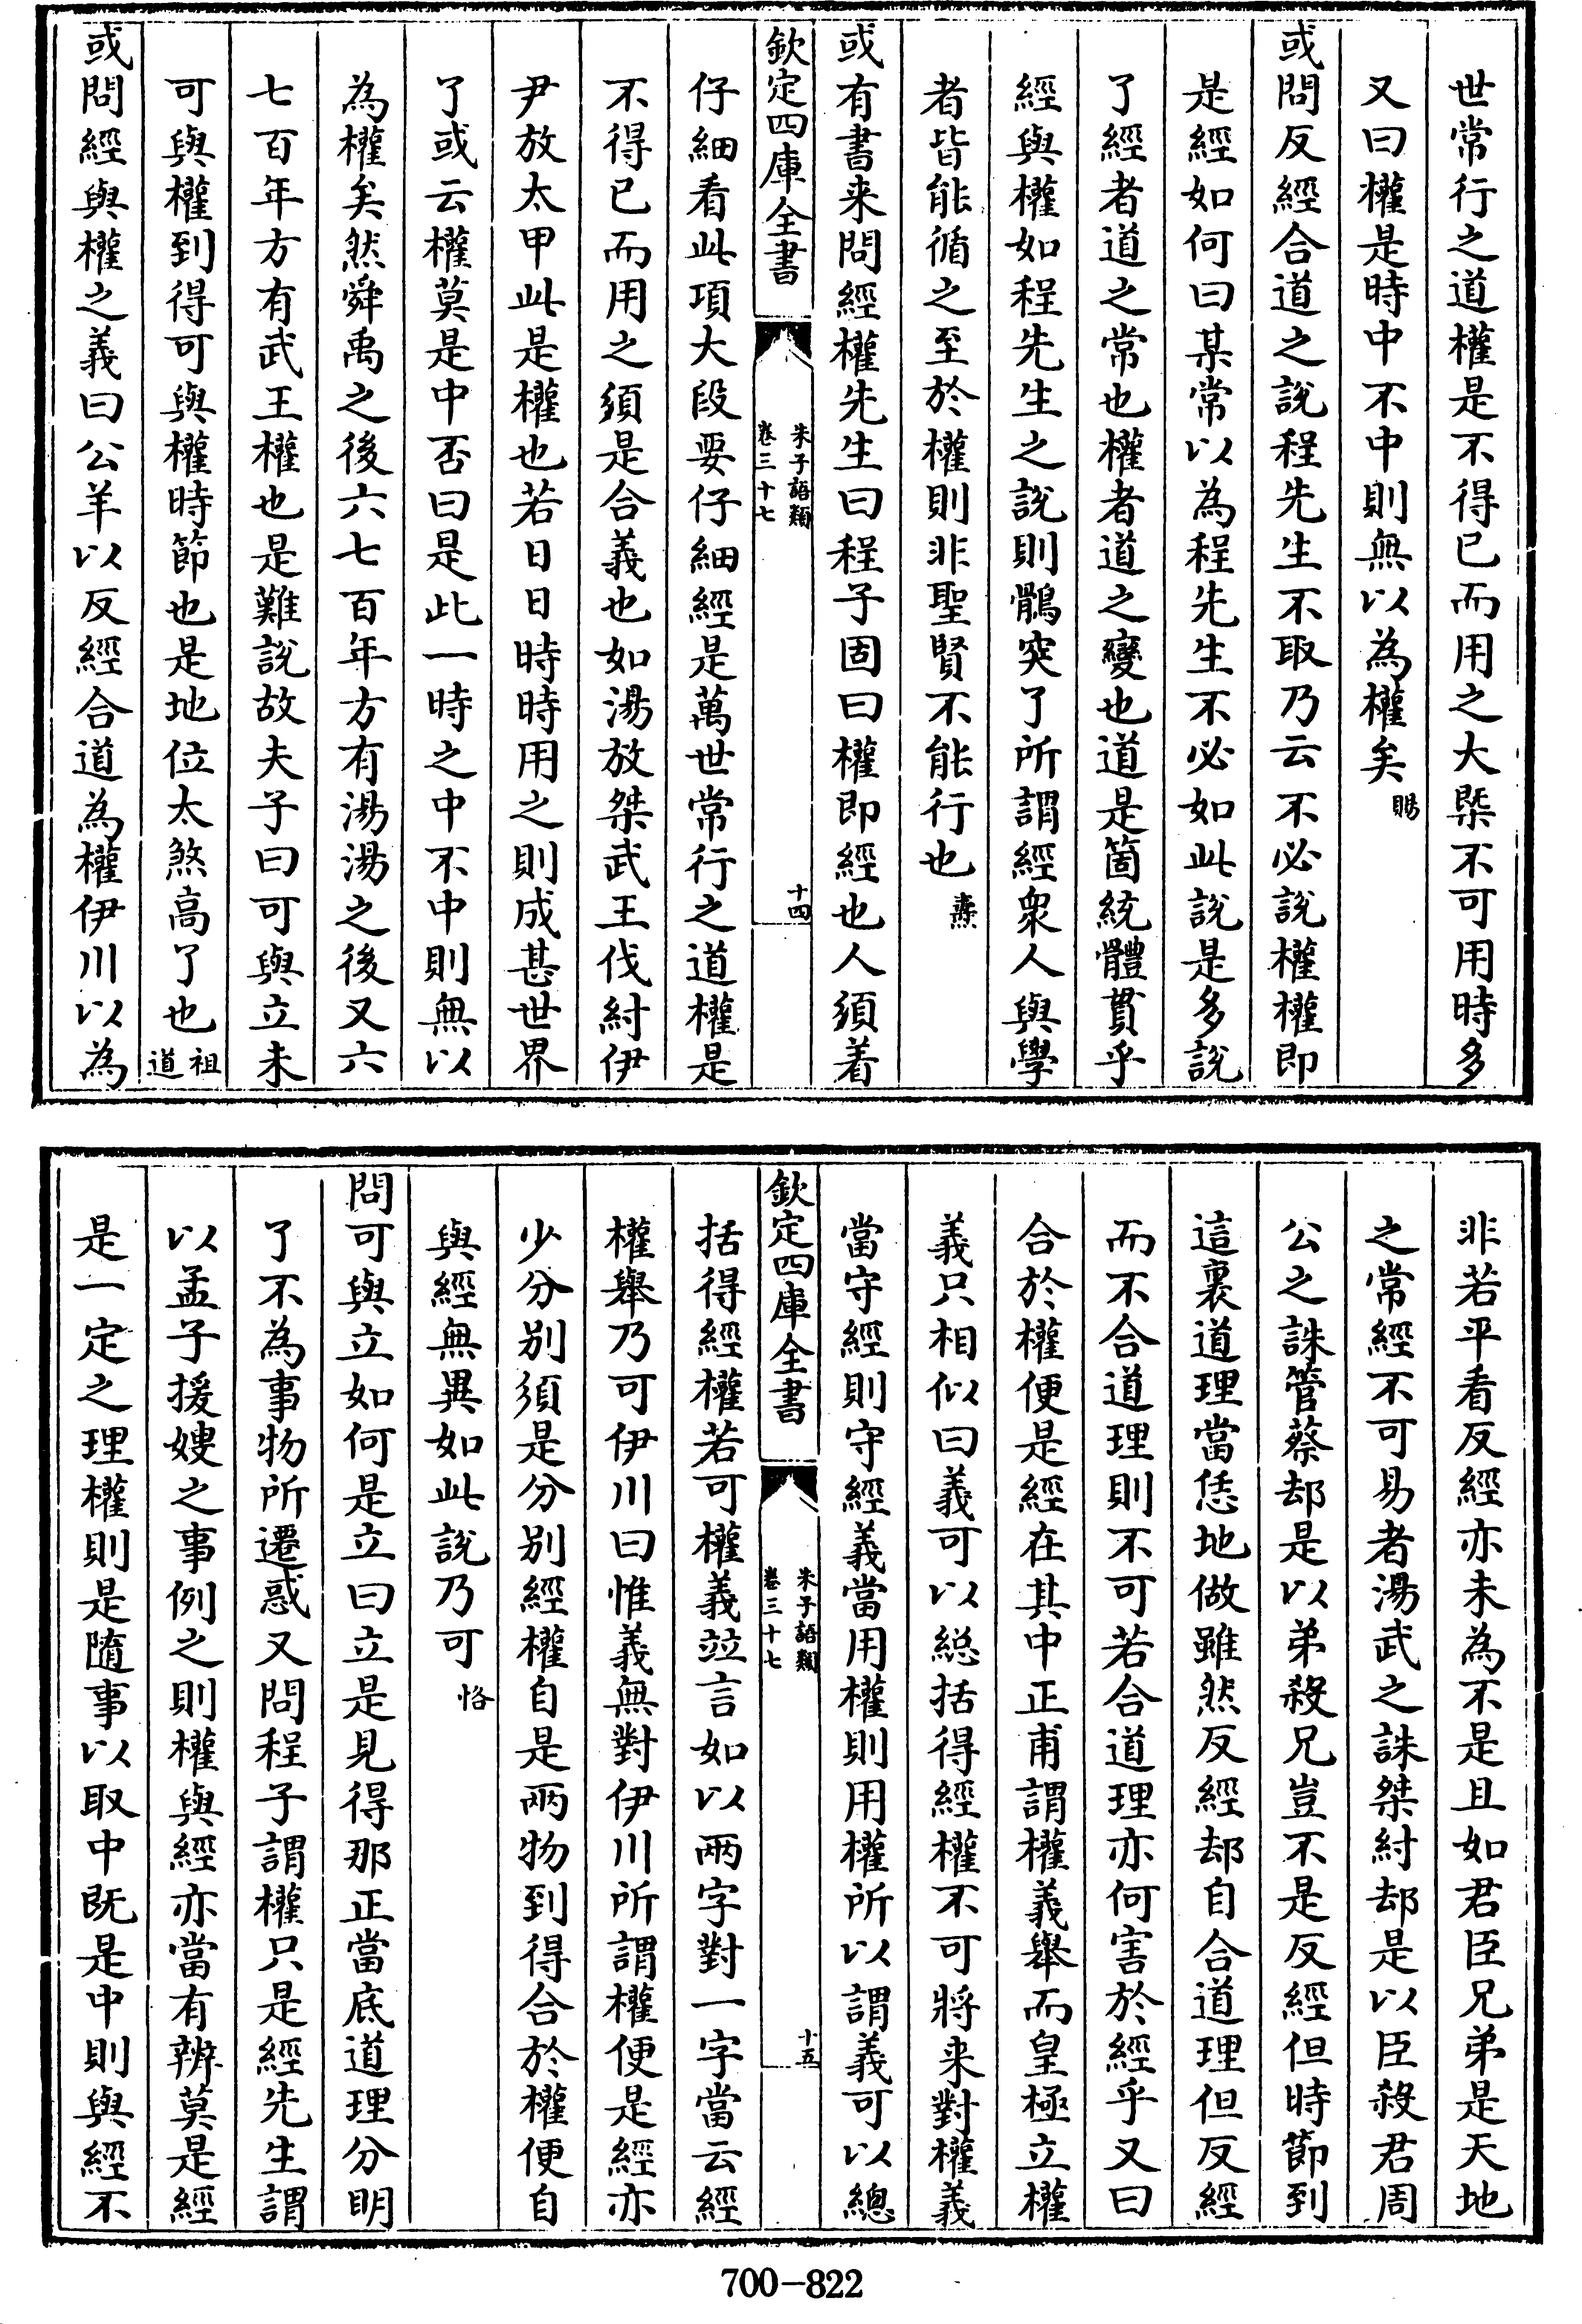 世常行之道權是不得已而用之大槩不可用時多
又曰權是時中不中則無以為權矣賜
或問反經合道之說程先生不取乃云不必說權權即
是經如何曰某常以為程先生不必如此說是多說
了經者道之常也權者道之變也道是箇統體貫乎
經與權如程先生之說則鶻突了所謂經衆人與學
者皆能循之至於權則非聖賢不能行也燾
或有書来問經權先生曰程子固曰權即經也人須着
欽定四庫全書
朱子語類
卷三十七
十四
仔細看此項大段要仔細經是萬世常行之道權是
不得已而用之須是合義也如湯放桀武王伐紂伊
尹放太甲此是權也若日日時時用之則成甚世界
了或云權莫是中否曰是此一時之中不中則無以
為權矣然舜禹之後六七百年方有湯湯之後又六
七百年方有武王權也是難說故夫子曰可與立未
可與權到得可與權時節也是地位太煞高了也祖道
或問經與權之義曰公羊以反經合道為權伊川以為
非若平看反經亦未為不是且如君臣兄弟是天地
之常經不可易者湯武之誅桀紂却是以臣殺君周
公之誅管蔡却是以弟殺兄豈不是反經但時節到
這裏道理當恁地做雖然反經却自合道理但反經
而不合道理則不可若合道理亦何害於經乎又曰
合於權便是經在其中正甫謂權義舉而皇極立權
義只相似曰義可以総括得經權不可將来對權義
當守經則守經義當用權則用權所以謂義可以總
欽定四庫全書
朱子語類
卷三十七
十五
括得經權若可權義竝言如以兩字對一字當云經
權舉乃可伊川曰惟義無對伊川所謂權便是經亦
少分别須是分别經權自是兩物到得合於權便自
與經無異如此說乃可恪
問可與立如何是立曰立是見得那正當底道理分明
了不為事物所遷惑又問程子謂權只是經先生謂
以孟子援嫂之事例之則權與經亦當有辨莫是經
是一定之理權則是隨事以取中既是中則與經不
700-822